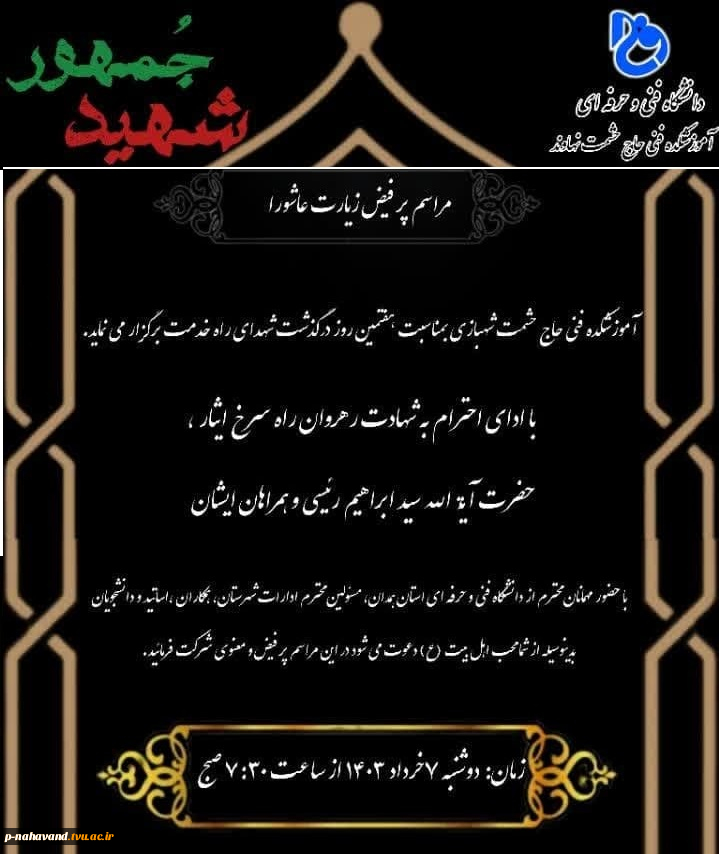 جُمهور
شهید
دانشگاه فنی و حرفه ای
آموزشکده فنی حاج حشمت نهاوند
مراسم پر فیض زیارت عاشورا
آموزشکده فنی حاج حشمت شهبازی بمناسبت هفتمین روز درگذشت شهدای راه خدمت برگزار می نماید.
با ادای احترام به شهادت رهروان راه سرخ ایثار ،
حضرت آیة الله سید ابراهیم رئیسی و همراهان ایشان
با حضور مهمانان محترم از دانشگاه فنی و حرفه ای استان همدان، مسئولین محترم ادارات شهرستان، همکاران ،اساتید و دانشجویان
بدینوسیله از شما محب اهل بیت (ع) دعوت می شود در این مراسم پر فیض و معنوی شرکت فرمائید.
زمان: دوشنبه ۷ خرداد ۱۴۰۳ از ساعت ۷:۳۰ صبح
p-nahavand.tvu.ac.ir